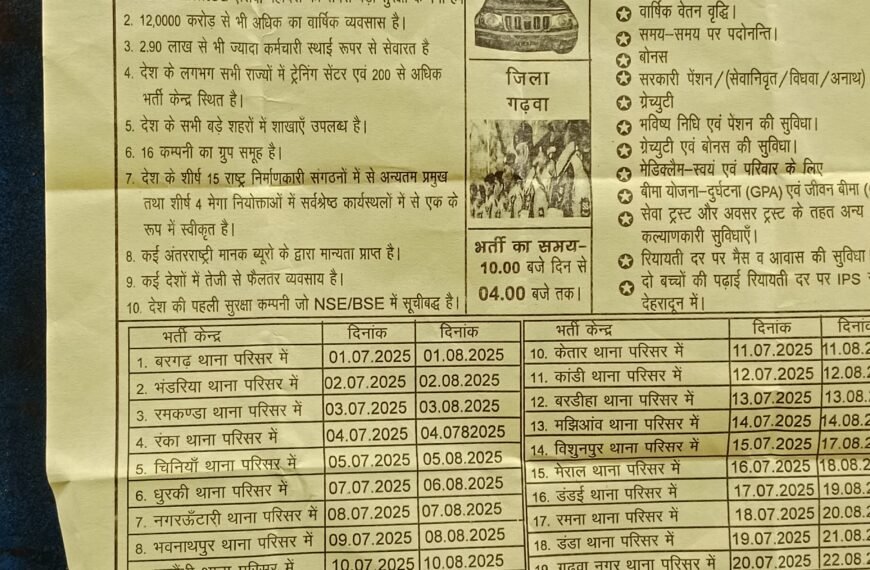 2. 12,0000 करोड़ से भी अधिक का वार्षिक व्यवसास है।
3. 2.90 लाख से भी ज्यादा कर्मचारी स्थाई रूपर से सेवारत है
4. देश के लगभग सभी राज्यों में ट्रेनिंग सेंटर एवं 200 से अधिक
भर्ती केन्द्र स्थित है।
5. देश के सभी बड़े शहरों में शाखाएँ उपलब्ध है।
6. 16 कम्पनी का ग्रुप समूह है।
7. देश के शीर्ष 15 राष्ट्र निर्माणकारी संगठनों में से अन्यतम प्रमुख
तथा शीर्ष 4 मेगा नियोक्ताओं में सर्वश्रेष्ठ कार्यस्थलों में से एक के
रूप में स्वीकृत है।
8. कई अंतरराष्ट्री मानक ब्यूरो के द्वारा मान्यता प्राप्त है।
9. कई देशों में तेजी से फैलतर व्यवसाय है।
10. देश की पहली सुरक्षा कम्पनी जो NSE/BSE में सूचिबद्ध है।
जिला
गढ़वा
भर्ती का समय–
10.00 बजे दिन से
04.00 बजे तक।
वार्षिक वेतन वृद्धि।
समय–समय पर पदोनन्ति।
बोनस
सरकारी पेंशन/(सेवानिवृत/विधवा/अनाथ)
ग्रेच्युटी
भविष्य निधि एवं पेंशन की सुविधा।
ग्रेच्युटी एवं बोनस की सुविधा।
मेडिक्लैम–स्वयं एवं परिवार के लिए
बीमा योजना–दुर्घटना (GPA) एवं जीवन बीमा
सेवा ट्रस्ट और अवसर ट्रस्ट के तहत अन्य
कल्याणकारी सुविधाएँ।
रियायती दर पर मैस व आवास की सुविधा
दो बच्चों की पढ़ाई रियायती दर पर IPS
देहरादून में।
भर्ती केन्द्र दिनांक दिनांक
1. बरगढ़ थाना परिसर में 01.07.2025 01.08.2025
2. भंडरिया थाना परिसर में 02.07.2025 02.08.2025
3. रमकण्डा थाना परिसर में 03.07.2025 03.08.2025
4. रंका थाना परिसर में 04.07.2025 04.0782025
5. चिनियाँ थाना परिसर में 05.07.2025 05.08.2025
6. धुरकी थाना परिसर में 07.07.2025 06.08.2025
7. नगरऊँटारी थाना परिसर में 08.07.2025 07.08.2025
8. भवनाथपुर थाना परिसर में 09.07.2025 08.08.2025
10.07.2025 10.08.2025
भर्ती केन्द्र दिनांक
10. केतार थाना परिसर में 11.07.2025 11.08.2
11. कांडी थाना परिसर में 12.07.2025 12.08.2
12. बरडीहा थाना परिसर में 13.07.2025 13.08.
13. मझिआंव थाना परिसर में 14.07.2025 14.08.2
14. विशुनपुर थाना परिसर में 15.07.2025 17.08.2
15. मेराल थाना परिसर में 16.07.2025 18.08.2
16. डंडई थाना परिसर में 17.07.2025 19.08.2
17. रमना थाना परिसर में 18.07.2025 20.08.2
18. डंडा थाना परिसर में 19.07.2025 21.08.2
19. गढवा नगर थाना परिसर में 20.07.2025 22.08.2